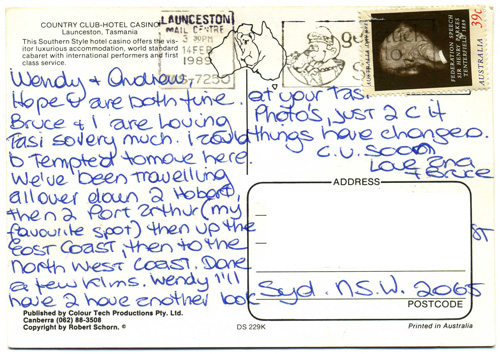 COUNTRY CLUB-HOTEL CASINO
Launceston, Tasmania
This Southern Style hotel casino offers the vis-
itor luxurious accommodation, world standard
cabaret with international performers and first
class service.
LAUNCESTON
MAIL CENTRE
3 PM
14 FEB
1989
7250
39c
AUSTRALIA
FEDERATION SPEECH
SIR HENRY PARKES
TENTERFIELD 1889
Wendy & Andrew,
Hope U are both fine.
Bruce & I are loving
Tasi so very much. I could
b Tempted to move here.
We've been travelling
all over down 2 Hobert,
then 2 Port Arthur (my
favourite spot) then up the
East Coast, then to the
North West Coast. Done
a few Klms. Wendy I'll
have 2 have another look
at your Tasi
Photo's, just 2 C if
things have changed.
C.U. Soon
Love
& Bruce
ADDRESS
ST
Syd. N.S.W. 2065
POSTCODE
Published by Colour Tech Productions Pty. Ltd.
Canberra (062) 88-3508
Copyright by Robert Schorn. ©
DS 229K
Printed in Australia